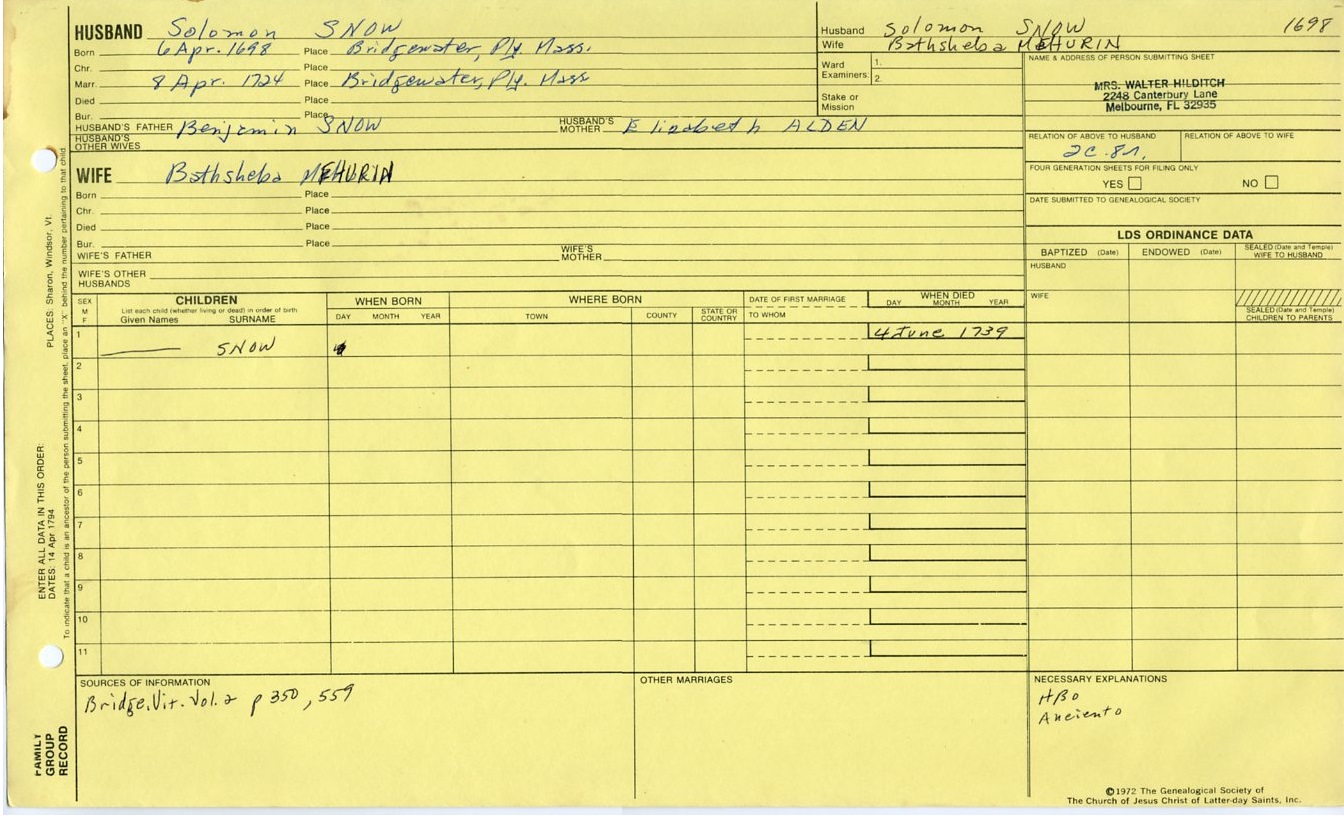 HUSBAND Solomon SNOW
Born 6 Apr. 1698 Place Bridgewater, Ply. Mass.
Chr. Place
Marr. 8 Apr. 1724 Place Bridgewater, Ply. Mass
Died Place
Bur. Place
HUSBAND'S FATHER Benjamin SNOW HUSBAND'S MOTHER Elizabeth ALDEN
HUSBAND'S OTHER WIVES
Husband Solomon SNOW 1698
Wife Bathsheba MEHURIN
Ward Examiners: 1.
2.
Stake or Mission
NAME & ADDRESS OF PERSON SUBMITTING SHEET
MRS. WALTER HILDITCH
2248 Canterbury Lane
Melbourne, FL 32935
RELATION OF ABOVE TO HUSBAND RELATION OF ABOVE TO WIFE
2C 8r.
FOUR GENERATION SHEETS FOR FILING ONLY
YES NO
DATE SUBMITTED TO GENEALOGICAL SOCIETY
WIFE Bathsheba MEHURIN
Born Place
Chr. Place
Died Place
Bur. Place
WIFE'S FATHER WIFE'S MOTHER
WIFE'S OTHER HUSBANDS
LDS ORDINANCE DATA
BAPTIZED (Date) ENDOWED (Date) SEALED (Date and Temple) WIFE TO HUSBAND
HUSBAND
WIFE
SEALED (Date and Temple) CHILDREN TO PARENTS
SEX M F
CHILDREN
List each child (whether living or dead) in order of birth
Given Names SURNAME
WHEN BORN
DAY MONTH YEAR
WHERE BORN
TOWN COUNTY STATE OR COUNTRY
DATE OF FIRST MARRIAGE
TO WHOM
WHEN DIED
DAY MONTH YEAR
1 SNOW 4 June 1739
2
3
4
5
6
7
8
9
10
11
SOURCES OF INFORMATION
Bridge. Vit. Vol. 2 p 350, 559
OTHER MARRIAGES
NECESSARY EXPLANATIONS
HBO
Anciento
©1972 The Genealogical Society of
The Church of Jesus Christ of Latter-day Saints, Inc.
PLACES: Sharon, Windsor, Vt.
ENTER ALL DATA IN THIS ORDER:
DATES: 14 Apr 1794
To indicate that a child is an ancestor of the person submitting the sheet, place an "X" behind the number pertaining to that child
FAMILY
GROUP
RECORD